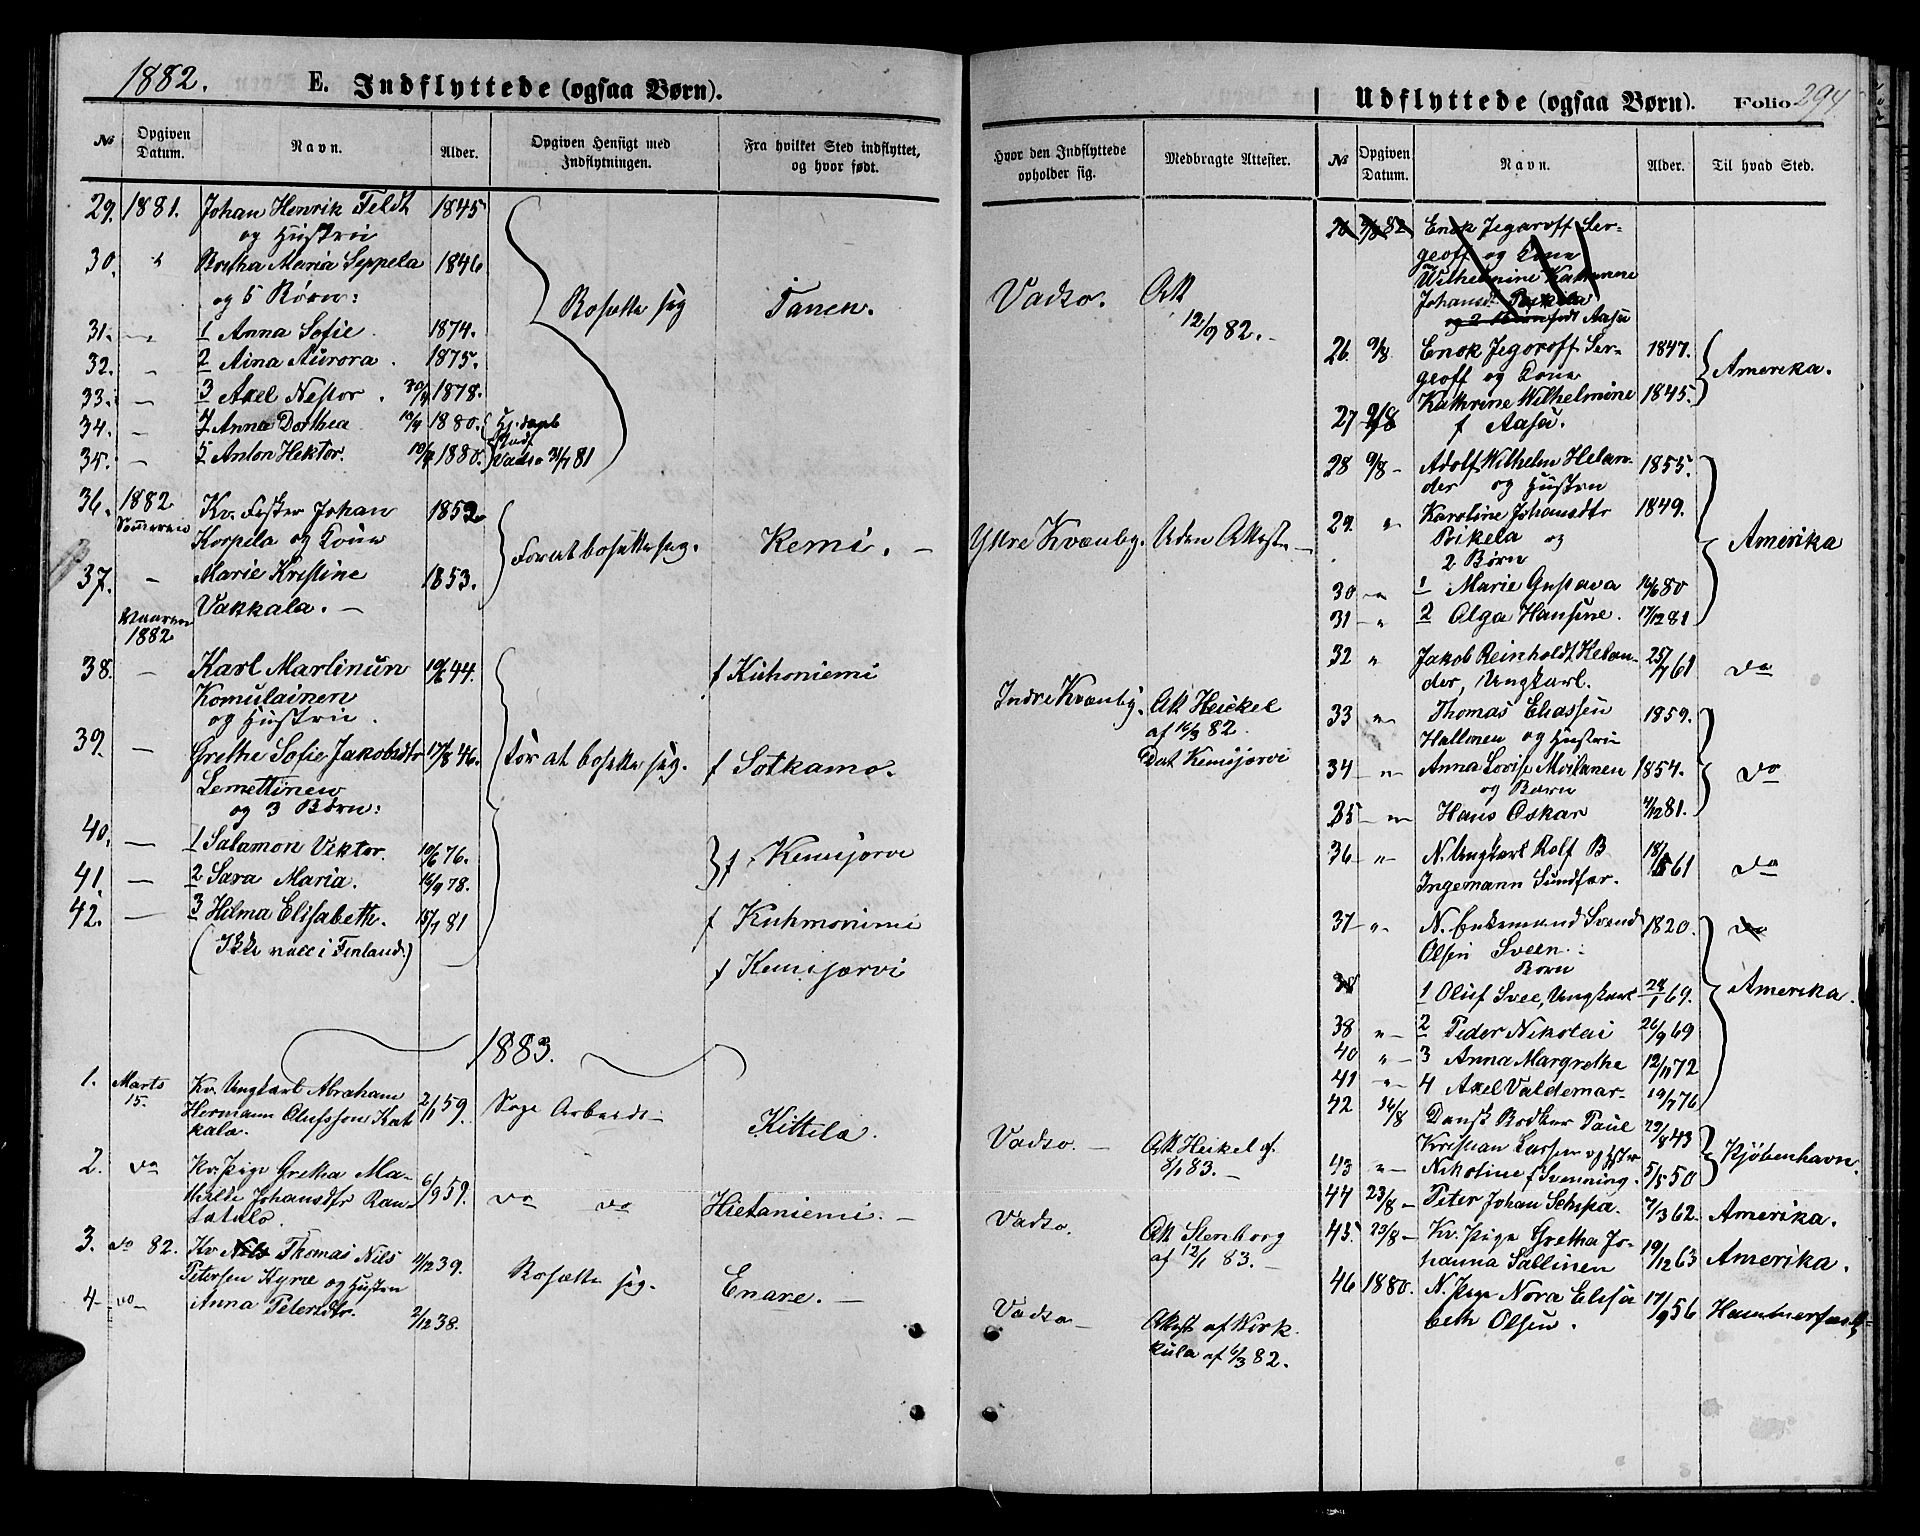 1882.
E. Indflyttede (ogsaa Børn).
№
Opgiven Datum.
Navn.
Alder.
Opgiven Hensigt med Indflytningen.
Fra hvilket Sted indflyttet, og hvor født.
29. 1881. Johan Henrik Feldt 1845
og Hustru
30. " Bretha Maria Seppela 1846
og 5 Børn:
Bosætte sig Tanen.
31. — 1 Anna Sofie. 1874.
32. — 2 Aina Aurora. 1875.
33. — 3 Axel Nestor. 30/4 1878.
34. — 4 Anna Dorthea 1880.
35. — 5 Anton Hektor. 1880. Vadsø 81
36. 1882 Kv. Fisker Johan 1852
Korpela og Kone
For at bosætte sig. Kemi. —
37. — Marie Kristine 1853.
Vakkala. —
Vaaren
1882
38. — Karl Martinun 19/6 44. f Kuhoniemi
Komulainen
og Hustru.
39. — Grethe Sofie Jakobsdtr 17/8 46. For at bosætte sig. f Sotkamo.
Lemettinen
og 3 Børn:
40. — 1 Salamon Viktor. 10/6 76.
f. Kemijærvi
41. — 2 Sara Maria. 16/9 78.
42. — 3 Hilma Elisabeth. 15/7 81 f Kuhmoniemi
(Ikke vacc i Finland.)
f Kemijærvi
1883.
1. Marts Kv. Ungkarl Abraham
15. Hermann Olufssøn Kat 2/1 59. Søge Arbeide — Kittila.
kala.
2. do Kv. Pige Gretha Ma-
thilde Johansdtr Ran- 6/9 59. do do Hietaniemi. —
tatalo.
3. do 82. Kv. Nils Thomas Nils 4/12 39.
Petersen Kyrø og Hustru Bosætte sig. Enare. —
4 do Anna Petersdtr. 2/12 38.
Udflyttede (ogsaa Børn). Folio 294
Hvor den Indflyttede opholder sig.
Medbragte Attester.
№
Opgiven Datum.
Navn.
Alder.
Til hvad Sted.
Vadsø. Att
12/9 82. —
Ytre Kvænby. Uden Attest —
Indre Kvænby. Att Heickel
af 16/3 82.
Dat Kemijärvi
Vadsø. — Att Heikel af
5/1 83. —
Vadsø. Att Stenborg
af 12/1 83. —
Vadsø — Attest af Wirk
kula af 6/3 82.
26 9/8 82 Enok Jegaroff Ser-
geoff og Kone
Wilhelmine Kathrine
Johansd. Pikila
og 2 Børn født Aasu
26. 9/8. Enok Jegoroff Ser- 1847.
geoff og Kone Amerika.
27 9/8 Kathrine Wilhelmine 1845.
f Aasu.
28 9/8 — Adolf Wilhelm Helan- 1855.
der og Hustru
29. " Karoline Johansdtr 1849.
Pikela og Amerika
2 Børn
30 — " 1 Marie Gustava 14/6 80
31 — " 2 Olga Hansine. 17/12 81
32 " Jakob Reinholdt Helan- 25/7 61 do
der, Ungkarl.
33 " Thomas Eliassen 1859.
Hallonen og Hustru
34 — " Anna Lovise Moilanen 1854. do
og Barn
35 — " — Hans Oskar 4/12 81.
36 " N. Ungkarl Rolf B 61 do
Ingemann Sundfær.
37 " — N. Enkemand Svend 1820. do
Olsen Sveen:
Børn
38 1 Oluf Svee, Ungkarl 28/1 69. Amerika.
38 " — 2 Peder Nikolai 26/9 69
40 " — 3 Anna Margrethe 12/11 72
41 " — 4 Axel Valdemar — 19/7 76
42 16/8 Dansk Bødker Paul 29/8 43
Kristian Larsen og Hstru Kjøbenhavn.
43 " — Nikoline f Svenning. 5/5 50
44 23/8 — Peter Johan Schipa. 7/3 62. Amerika.
45. 23/8 — Kv. Pige Gretha Jo- 19/12 63 Amerika.
hanna Sallinen
46 1880. N. Pige Nora Elisa 17/9 56 Hammerfest
beth Olsen.